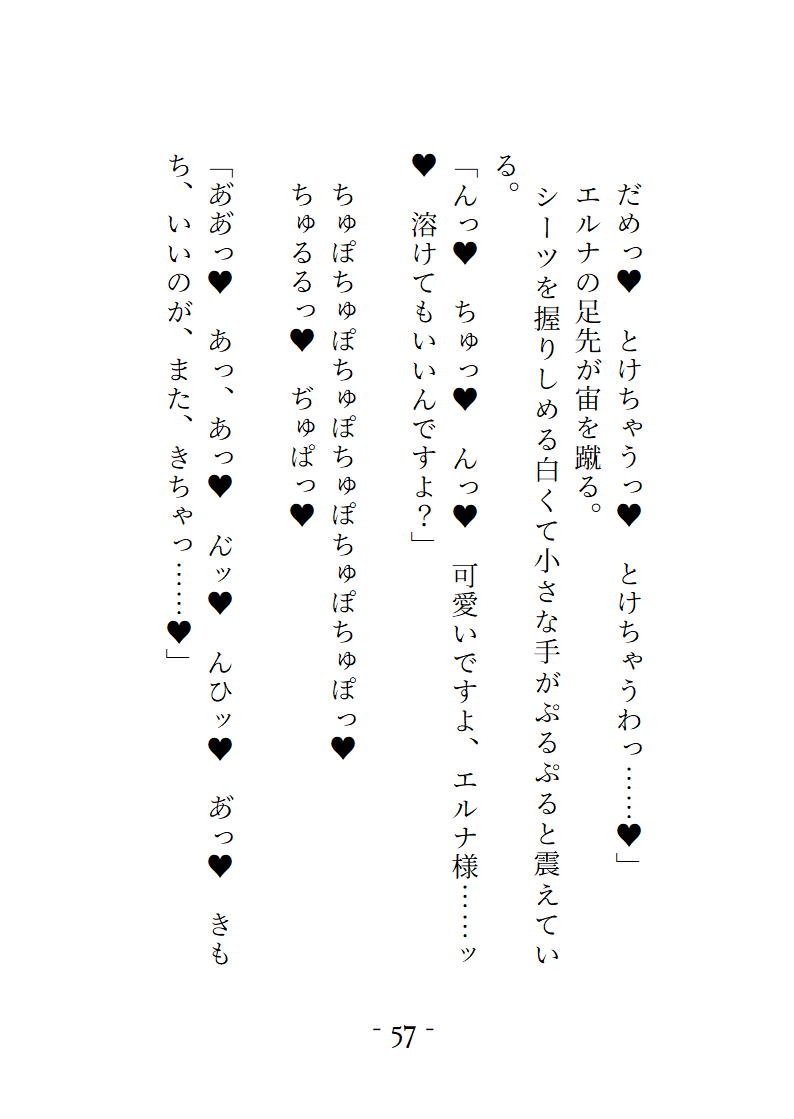 だめっ♥　とけちゃうっ♥　とけちゃうわっ……♥」
エルナの足先が宙を蹴る。
シーツを握りしめる白くて小さな手がぷるぷると震えてい
る。
「んっ♥　ちゅっ♥　んっ♥　可愛いですよ、エルナ様……ッ
♥　溶けてもいいんですよ？」
ちゅぽちゅぽちゅぽちゅぽちゅぽちゅぽっ♥
ちゅるるっ♥　ぢゅぱっ♥
「あ゙あ゙っ♥　あっ、あっ♥　ん゙ッ♥　んひッ♥　あ゙っ♥　きも
ち、いいのが、また、きちゃっ……♥」
- 57 -